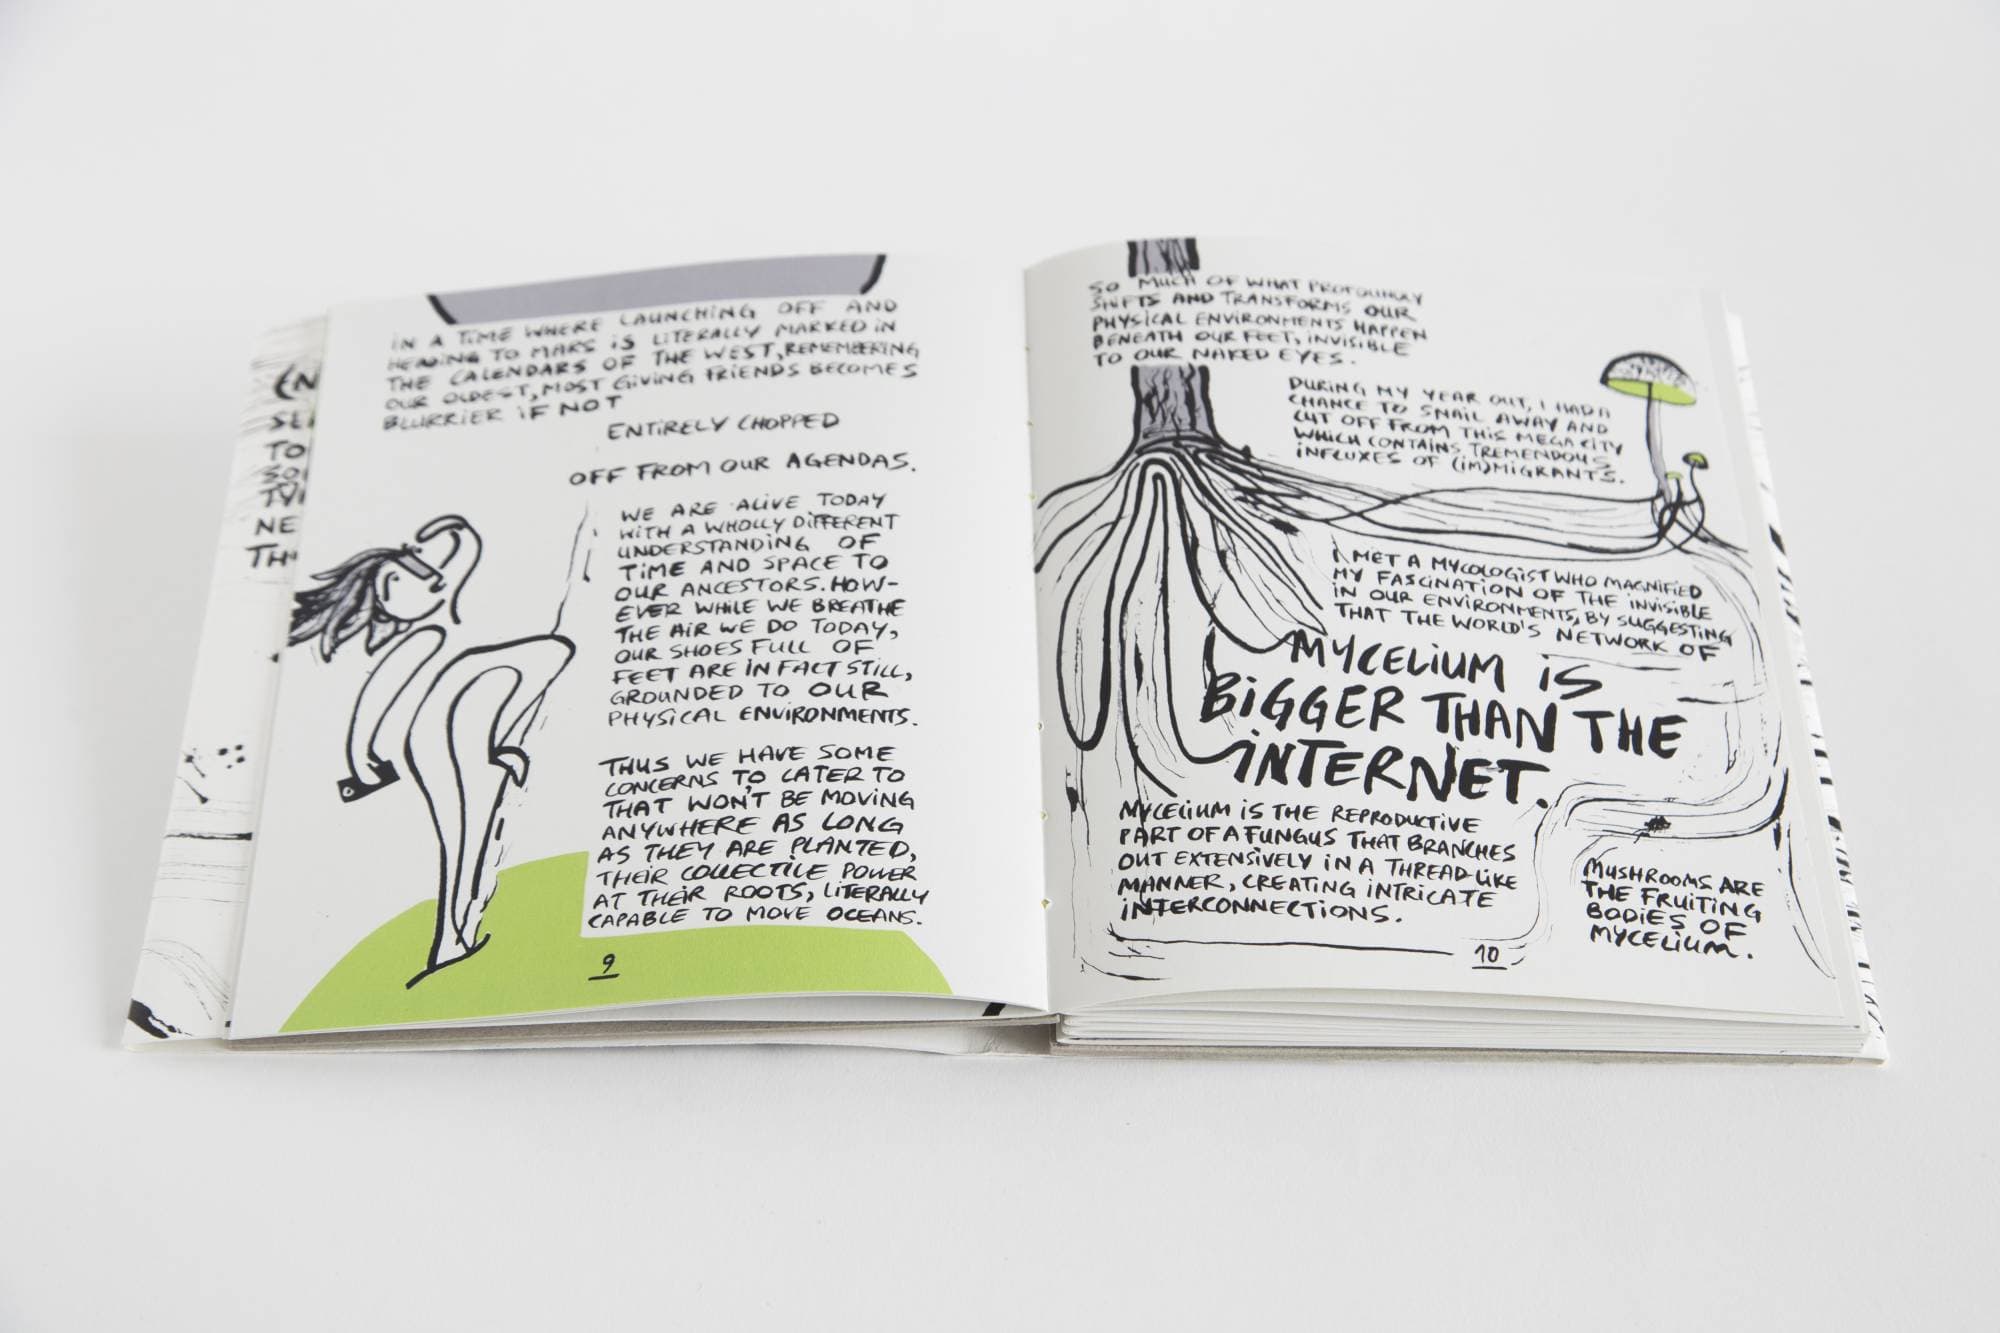 IN A TIME WHERE LAUNCHING OFF AND
HEADING TO MARS IS LITERALLY MARKED IN
THE CALENDARS OF THE WEST, REMEMBERING
OUR OLDEST, MOST GIVING FRIENDS BECOMES
BLURRIER IF NOT
ENTIRELY CHOPPED
OFF FROM OUR AGENDAS.
WE ARE ALIVE TODAY
WITH A WHOLLY DIFFERENT
UNDERSTANDING OF
TIME AND SPACE TO
OUR ANCESTORS. HOW-
EVER WHILE WE BREATHE
THE AIR WE DO TODAY,
OUR SHOES FULL OF
FEET ARE IN FACT STILL,
GROUNDED TO OUR
PHYSICAL ENVIRONMENTS.
THUS WE HAVE SOME
CONCERNS TO CATER TO
THAT WON'T BE MOVING
ANYWHERE AS LONG
AS THEY ARE PLANTED,
THEIR COLLECTIVE POWER
AT THEIR ROOTS, LITERALLY
CAPABLE TO MOVE OCEANS.
9
EN
SL
TO
SO
TV
NE
TH
SO MUCH OF WHAT PROFOUNDLY
SHIFTS AND TRANSFORMS OUR
PHYSICAL ENVIRONMENTS HAPPEN
BENEATH OUR FEET, INVISIBLE
TO OUR NAKED EYES.
DURING MY YEAR OUT, I HAD A
CHANCE TO SNAIL AWAY AND
CUT OFF FROM THIS MEGACITY
WHICH CONTAINS TREMENDOUS
INFLUXES OF (IM)MIGRANTS.
I MET A MYCOLOGIST WHO MAGNIFIED
MY FASCINATION OF THE INVISIBLE
IN OUR ENVIRONMENTS, BY SUGGESTING
THAT THE WORLD'S NETWORK OF
MYCELIUM IS
BIGGER THAN THE
INTERNET.
MYCELIUM IS THE REPRODUCTIVE
PART OF A FUNGUS THAT BRANCHES
OUT EXTENSIVELY IN A THREAD-LIKE
MANNER, CREATING INTRICATE
INTERCONNECTIONS.
MUSHROOMS ARE
THE FRUITING
BODIES OF
MYCELIUM.
10